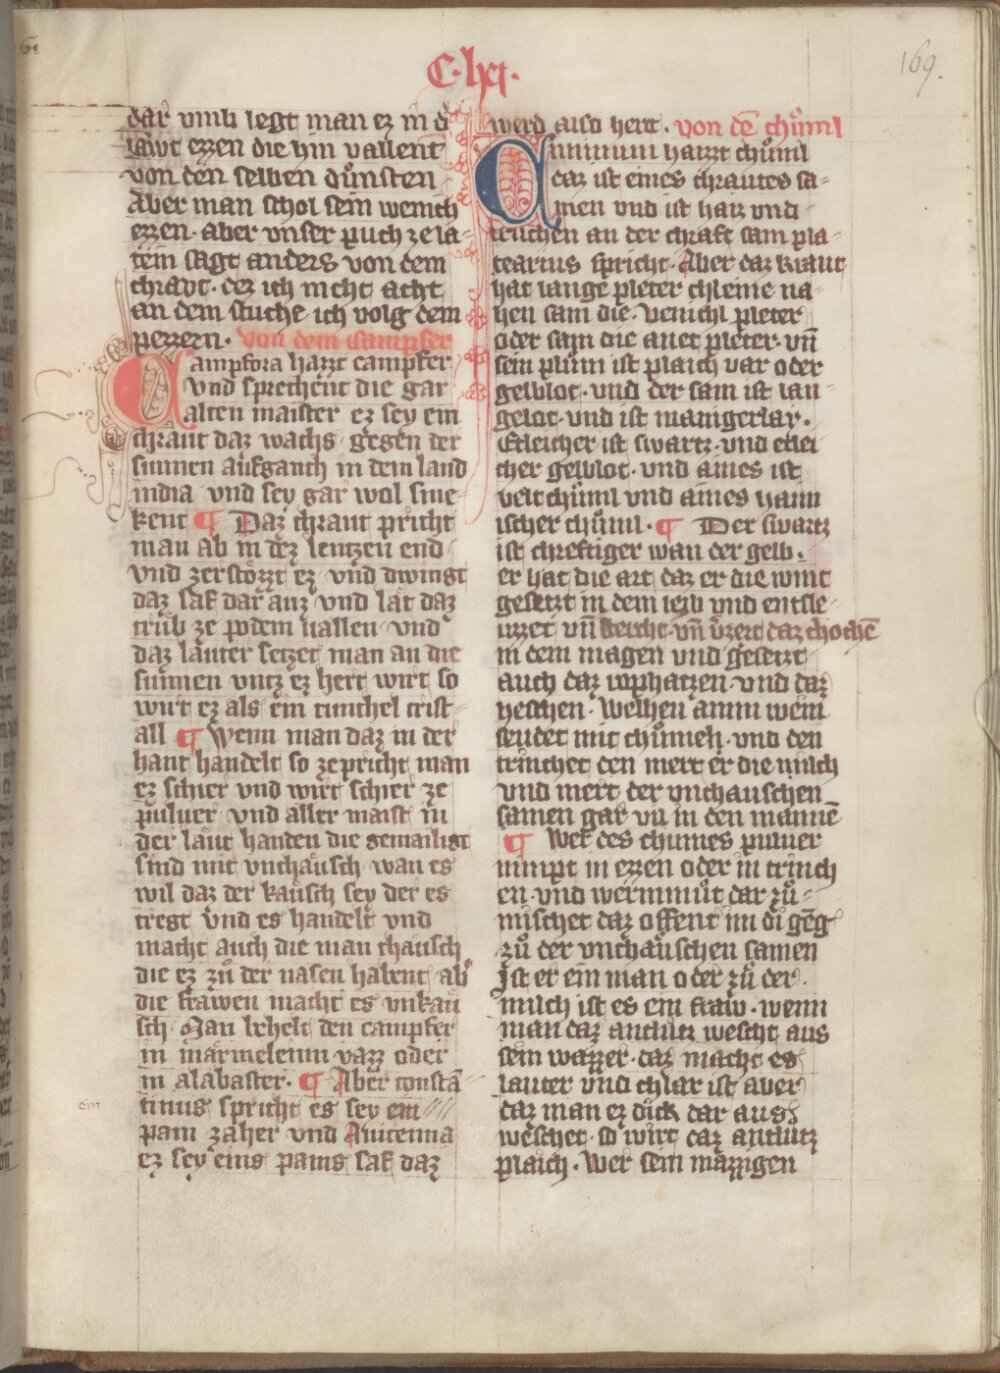 C·lxi·
169.
dar vmb legt man ez in d̕
lawt ezzen die ym vallent
von den selben dünsten
Aber man schol sein wenich
ezzen · aber vnser puch ze la-
tein sagt anders von dem
chravt · dez ich nicht acht
an dem stuche ich volg dem
pezzern · von dem campfer
Campfora haizt campfer
vnd sprechent die gar
alten maister ez sey ein
chraut daz wachs gegen der
sunnen aufganch in dem land
india vnd sey gar wol sme
kent ¶ Daz chraut pricht
man ab in dez lentzen end
vnd zerstözzt ez vnd dwingt
daz saf dar auz vnd lat daz
trüb ze podem uallen vnd
daz lauter setzet man an die
sunnen vntz ez hert wirt so
wirt ez als ein tunchel crist
all ¶ Wenn man daz in der
hant handelt so zepricht man
ez schier vnd wirt schier ze
puluer vnd aller maist in
der läut handen die gemailigt
sind mit vnchäusch wan es
wil daz der käusch sey der es
tregt vnd es handelt vnd
macht auch die man chäusch
die ez zů der nasen habent ab̕
die frawen macht es vnkäu
sch Man behelt den campfer
in märmeleinn vazz oder
in alabaster · ¶ Aber constā
tinus spricht es sey ein
pam zaher vnd Auicenna
ez sey eins pams saf daz
ein
werd also hert · von dē chůml
Ciminum haizzt chůml
daz ist eines chrautes sa-
men vnd ist haiz vnd
truchen an der chraft sam pla-
tearius spricht · Aber daz kraut
hat lange pleter chleine na
hen sam die · venichl pleter
oder sam die anet pleter · vn̄
sein plům ist plaich var oder
gelblot · vnd der sam ist lan
gelot · vnd ist manigerlay ·
Etleicher ist swartz · vnd etlei
cher gelblot · vnd aines ist
velt chůml vnd aines haim
ischer chůml · ¶ Der swartz
ist chreftiger wan der gelb ·
er hat die art daz er die wint
gesetzt in dem leib vnd entsle
uzzet vn̄ vercht · vn̄ vzert daz chochē
in dem magen vnd gesetzt
auch daz kophatzen · vnd daz
heschen · Welhen amm wein
seudet mit chůmeln · vnd den
trinchet den mert er die milch
vnd mert der vnchauschen
samen gar vil in den mannē
¶ Wer des chumes puluer
nimpt in ezzen oder in trinch
en · vnd wermmůt dar zů
mischet daz offent im di geng
zů der vnchäuschen samen
Ist er ein man oder zů der
milch ist es ein fraw · wenn
man daz antlutz wescht aus
sein wazzer · daz macht es
lauter vnd chlar ist aber
daz man ez dick dar aus
weschet · so wirt daz antlutz
plaich · Wer sein mäzzigen